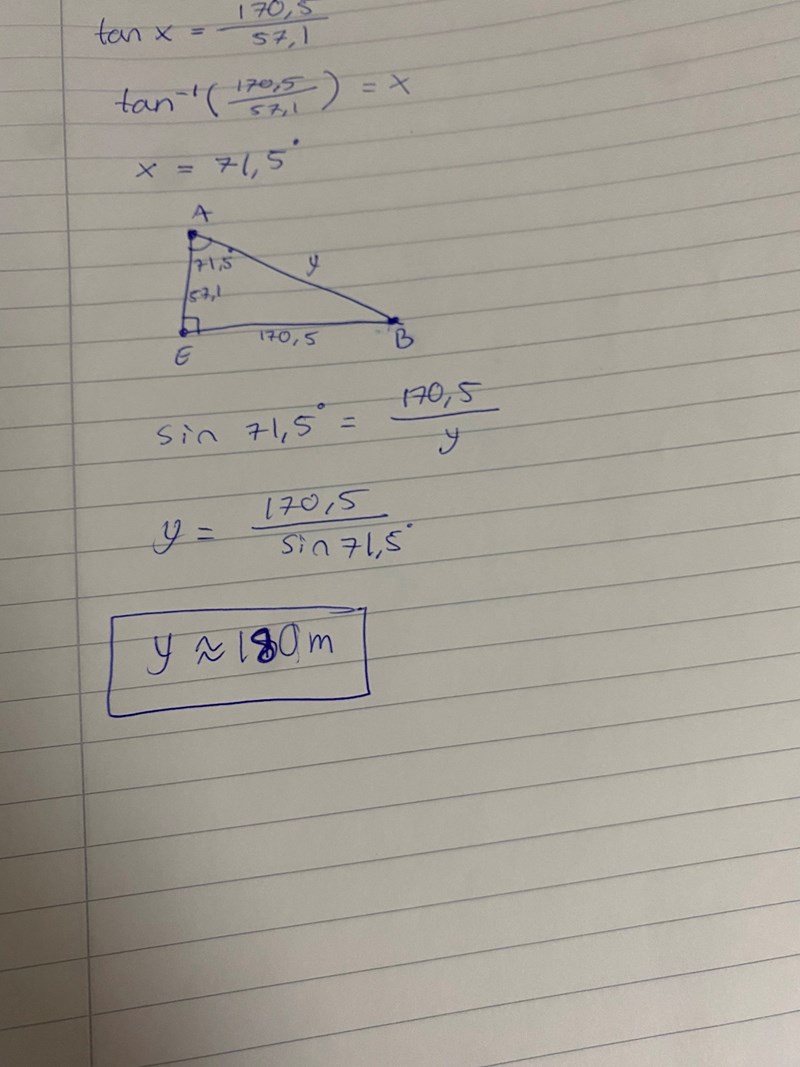 tan x = 170,5 / 57,1
tan⁻¹(170,5 / 57,1) = x
x = 71,5°
A
71,5°
y
57,1
170,5
E
B
sin 71,5° = 170,5 / y
y = 170,5 / sin 71,5°
y ≈ 180 m